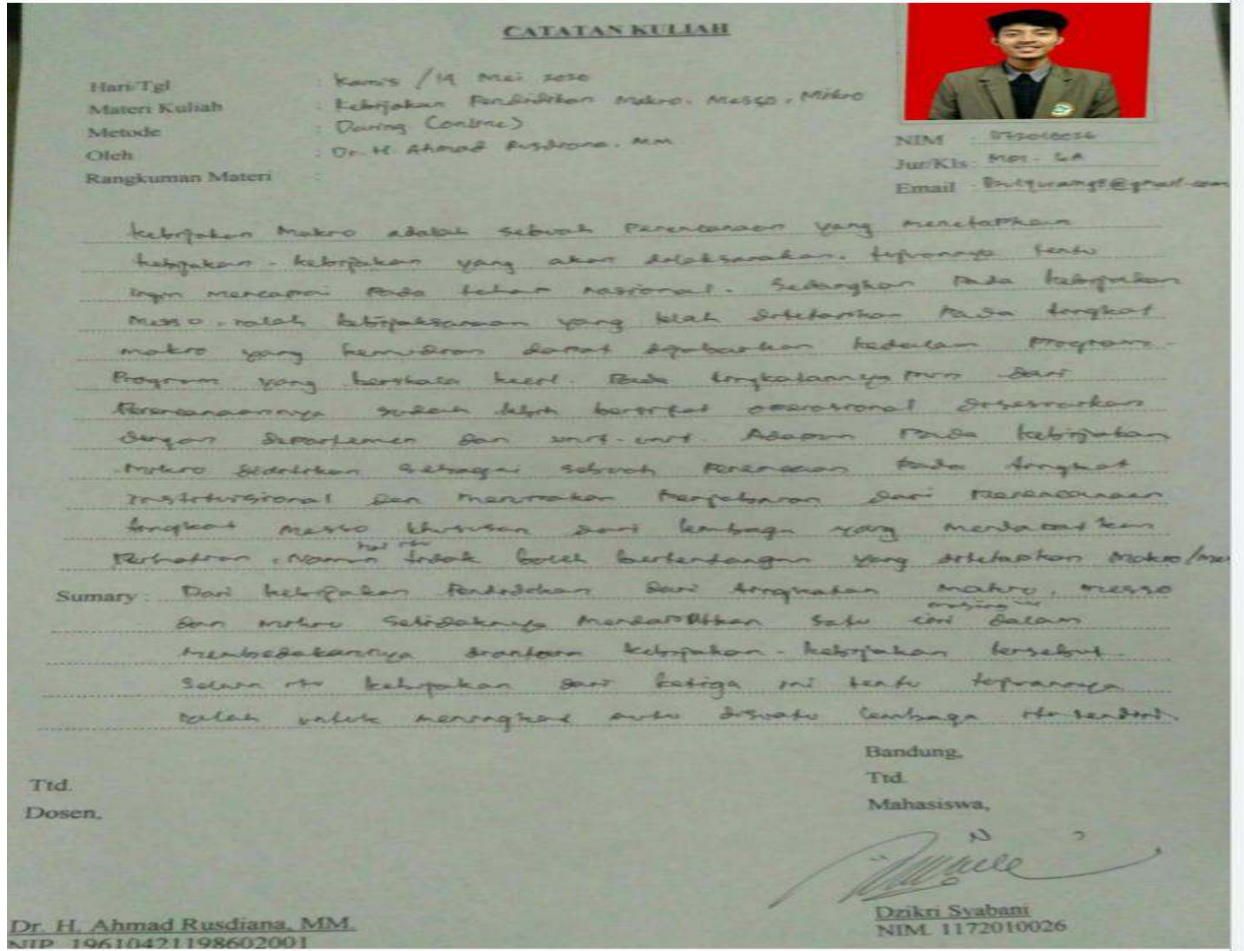 CATATAN KULIAH
Hari/Tgl : Kamis / 14 Mei 2020
Materi Kuliah : Kebijakan Pendidikan Makro, Messo, Mikro
Metode : Daring (online)
Oleh : Dr. H. Ahmad Rusdiana, MM
Rangkuman Materi :
NIM :
Jur/Kls : MPI - 6A
Email :
kebijakan Makro adalah sebuah Perencanaan yang menetapkan
kebijakan - kebijakan yang akan dilaksanakan. tujuannya tentu
ingin mencapai Pada tahap nasional. Sedangkan Pada kebijakan
Messo, ialah kebijaksanaan yang telah ditetapkan Pada tingkat
makro yang kemudian dapat dijabarkan kedalam Program-
Program yang berskala kecil. Pada tingkatannya pun dari
Perencanaannya sudah lebih bersifat operasional disesuaikan
dengan departemen dan unit-unit. Adapun Pada kebijakan
Mikro sebagai sebuah Pada tingkat
institusional dan merupakan Penjabaran dari Perencanaan
tingkat messo khususan dari lembaga yang mendapatkan
Perhatian. Namun hal itu tidak boleh bertentangan yang ditetapkan Makro/
Sumary : Dari kebijakan Pendidikan dari tingkatan makro, messo
dan mikro setidaknya mendapatkan satu ciri masing dalam
membedakannya diantara kebijakan - kebijakan tersebut.
Selain itu kebijakan dari ketiga ini tentu tujuannya
ialah untuk meningkat mutu disuatu lembaga itu sendiri.
Bandung,
Ttd. Ttd.
Dosen, Mahasiswa,
Dr. H. Ahmad Rusdiana, MM. Dzikri Syabani
NIP. 19610421198602001 NIM. 1172010026